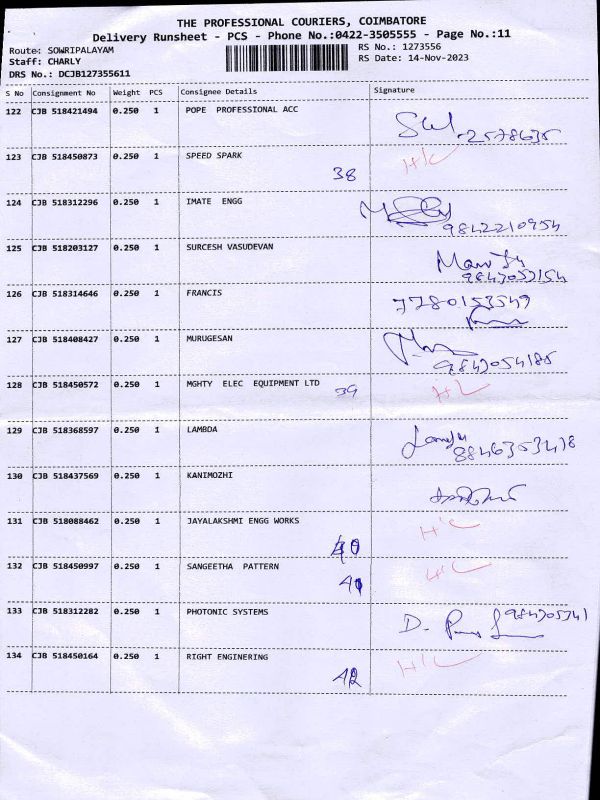 THE PROFESSIONAL COURIERS, COIMBATORE
Delivery Runsheet - PCS - Phone No.:0422-3505555 - Page No.:11
Route: SOWRIPALAYAM RS No.: 1273556
Staff: CHARLY RS Date: 14-Nov-2023
DRS No.: DCJB127355611
S No Consignment No Weight PCS Consignee Details Signature
122 CJB 518421494 0.250 1 POPE PROFESSIONAL ACC
2578635
123 CJB 518450873 0.250 1 SPEED SPARK
38
124 CJB 518312296 0.250 1 IMATE ENGG
9842210954
125 CJB 518203127 0.250 1 SURCESH VASUDEVAN
126 CJB 518314646 0.250 1 FRANCIS 7780153549
127 CJB 518408427 0.250 1 MURUGESAN
9843054185
128 CJB 518450572 0.250 1 MGHTY ELEC EQUIPMENT LTD 39
129 CJB 518368597 0.250 1 LAMBDA
130 CJB 518437569 0.250 1 KANIMOZHI
131 CJB 518088462 0.250 1 JAYALAKSHMI ENGG WORKS
40
132 CJB 518450997 0.250 1 SANGEETHA PATTERN
41
133 CJB 518312282 0.250 1 PHOTONIC SYSTEMS
134 CJB 518450164 0.250 1 RIGHT ENGINERING
42